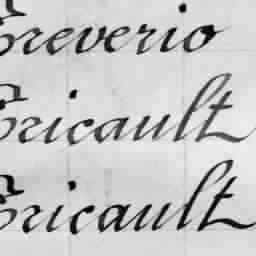 Treverio
Tricault
Tricault